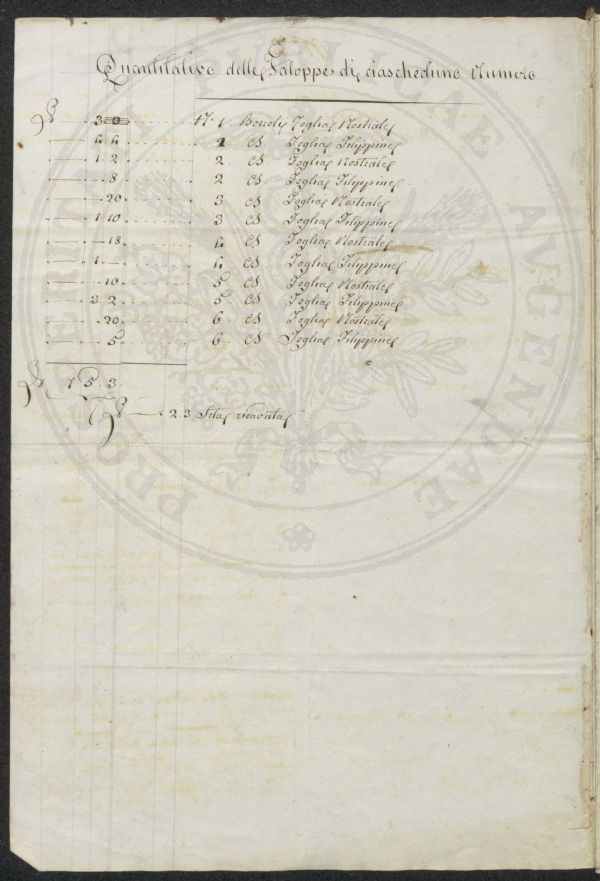 Quantitativo delle Faloppe di ciascheduno Numero
℔ 3 0 N. 1 Bozzoli Foglia Nostrale
4 4 1 Id Foglia Filippine
1 2 2 Id Foglia Nostrale
8 2 Id Foglia Filippine
20 3 Id Foglia Nostrale
1 10 3 Id Foglia Filippine
18 4 Id Foglia Nostrale
1 4 Id Foglia Filippine
10 5 Id Foglia Nostrale
3 2 5 Id Foglia Filippine
20 6 Id Foglia Nostrale
5 6 Id Foglia Filippine
℔ 15 3
℔ 2 3 Seta ricavata
PROSPERITATI PUBLICAE AUGENDAE